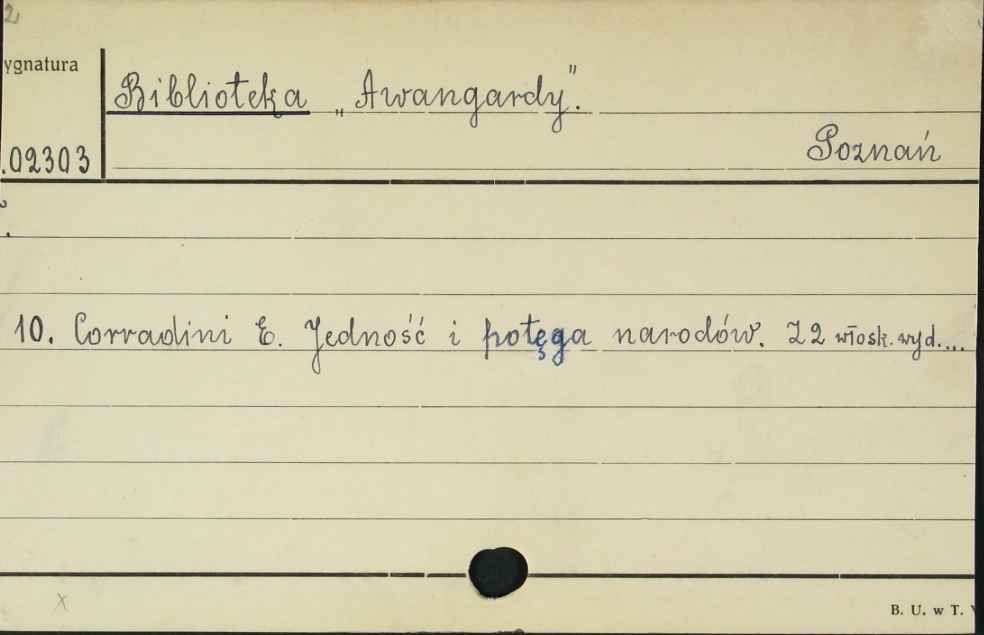 2
ygnatura
Biblioteka „Awangardy".
Poznań
.02303
10. Corradini E. Jedność i potęga narodów. Z 2 włosk. wyd....
x
B. U. w T.